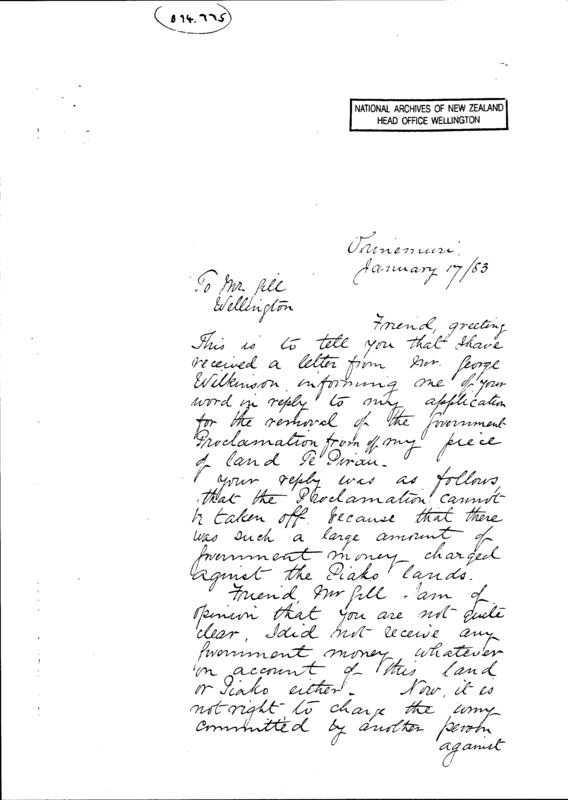 814.775
NATIONAL ARCHIVES OF NEW ZEALAND
HEAD OFFICE WELLINGTON
January 17/83
To Mr. Gill
Wellington
Friend, greeting
This is to tell you that I have
received a letter from Mr. George
Wilkinson, informing me of your
word in reply to my application
for the removal of the Government
Proclamation from off my piece
of land Te Pirau.
Your reply was as follows,
that the Proclamation cannot
be taken off because that there
was such a large amount of
Government money charged
against the Piako lands.
Friend, Mr Gill I am of
opinion that you are not quite
clear, I did not receive any
Government money whatever
on account of this land
or Piako either. Now, it is
not right to charge the wrong
committed by another person
against